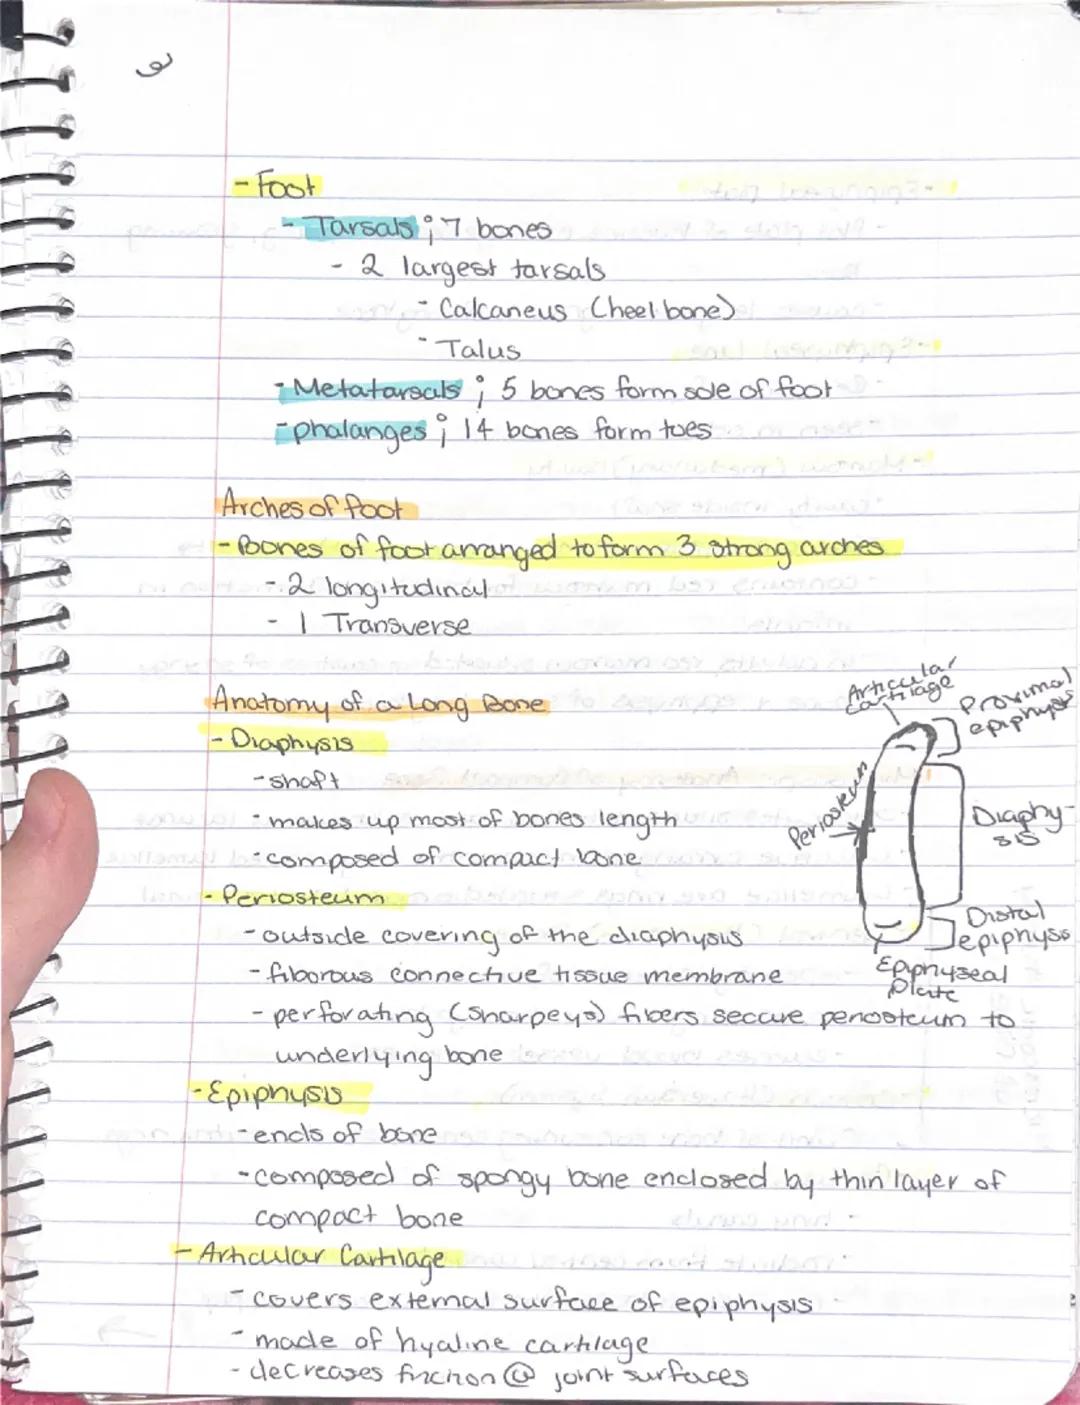 - Foot
- Tarsals ; 7 bones
- 2 largest tarsals
- Calcaneus (heel bone)
- Talus
- Metatarsals ; 5 bones form sole of foot
- phalanges ; 14 bones form toes
Arches of foot
- Bones of foot arranged to form 3 strong arches
- 2 longitudinal
- 1 Transverse
Anatomy of a Long Bone
- Diaphysis
- shaft
- makes up most of bones length
- composed of compact bone
- Periosteum
- outside covering of the diaphysis
- fiborous connective tissue membrane
- perforating (sharpeys) fibers secure periosteum to
underlying bone
- Epiphysis
- ends of bone
- composed of spongy bone enclosed by thin layer of
compact bone
- Articular Cartilage
- covers external surface of epiphysis
- made of hyaline cartilage
- decreases friction @ joint surfaces
Articular
Cartilage
Proximal
epiphysis
Periosteum
Diaphy-
sis
Distal
epiphysis
Epiphyseal
plate